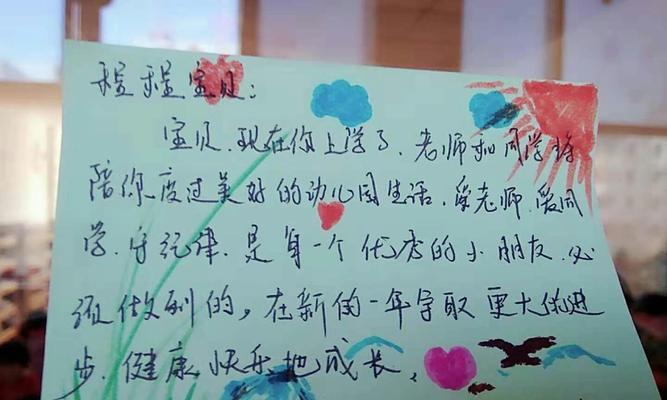 程程宝贝：
宝贝.现在你上学了.老师和同学将
陪你度过美好的幼儿园生活.爱老师.爱同
学.守纪律.是每一个优秀的小朋友.必
须做到的,在新的一年争取更大的进
步.健康快乐地成长.